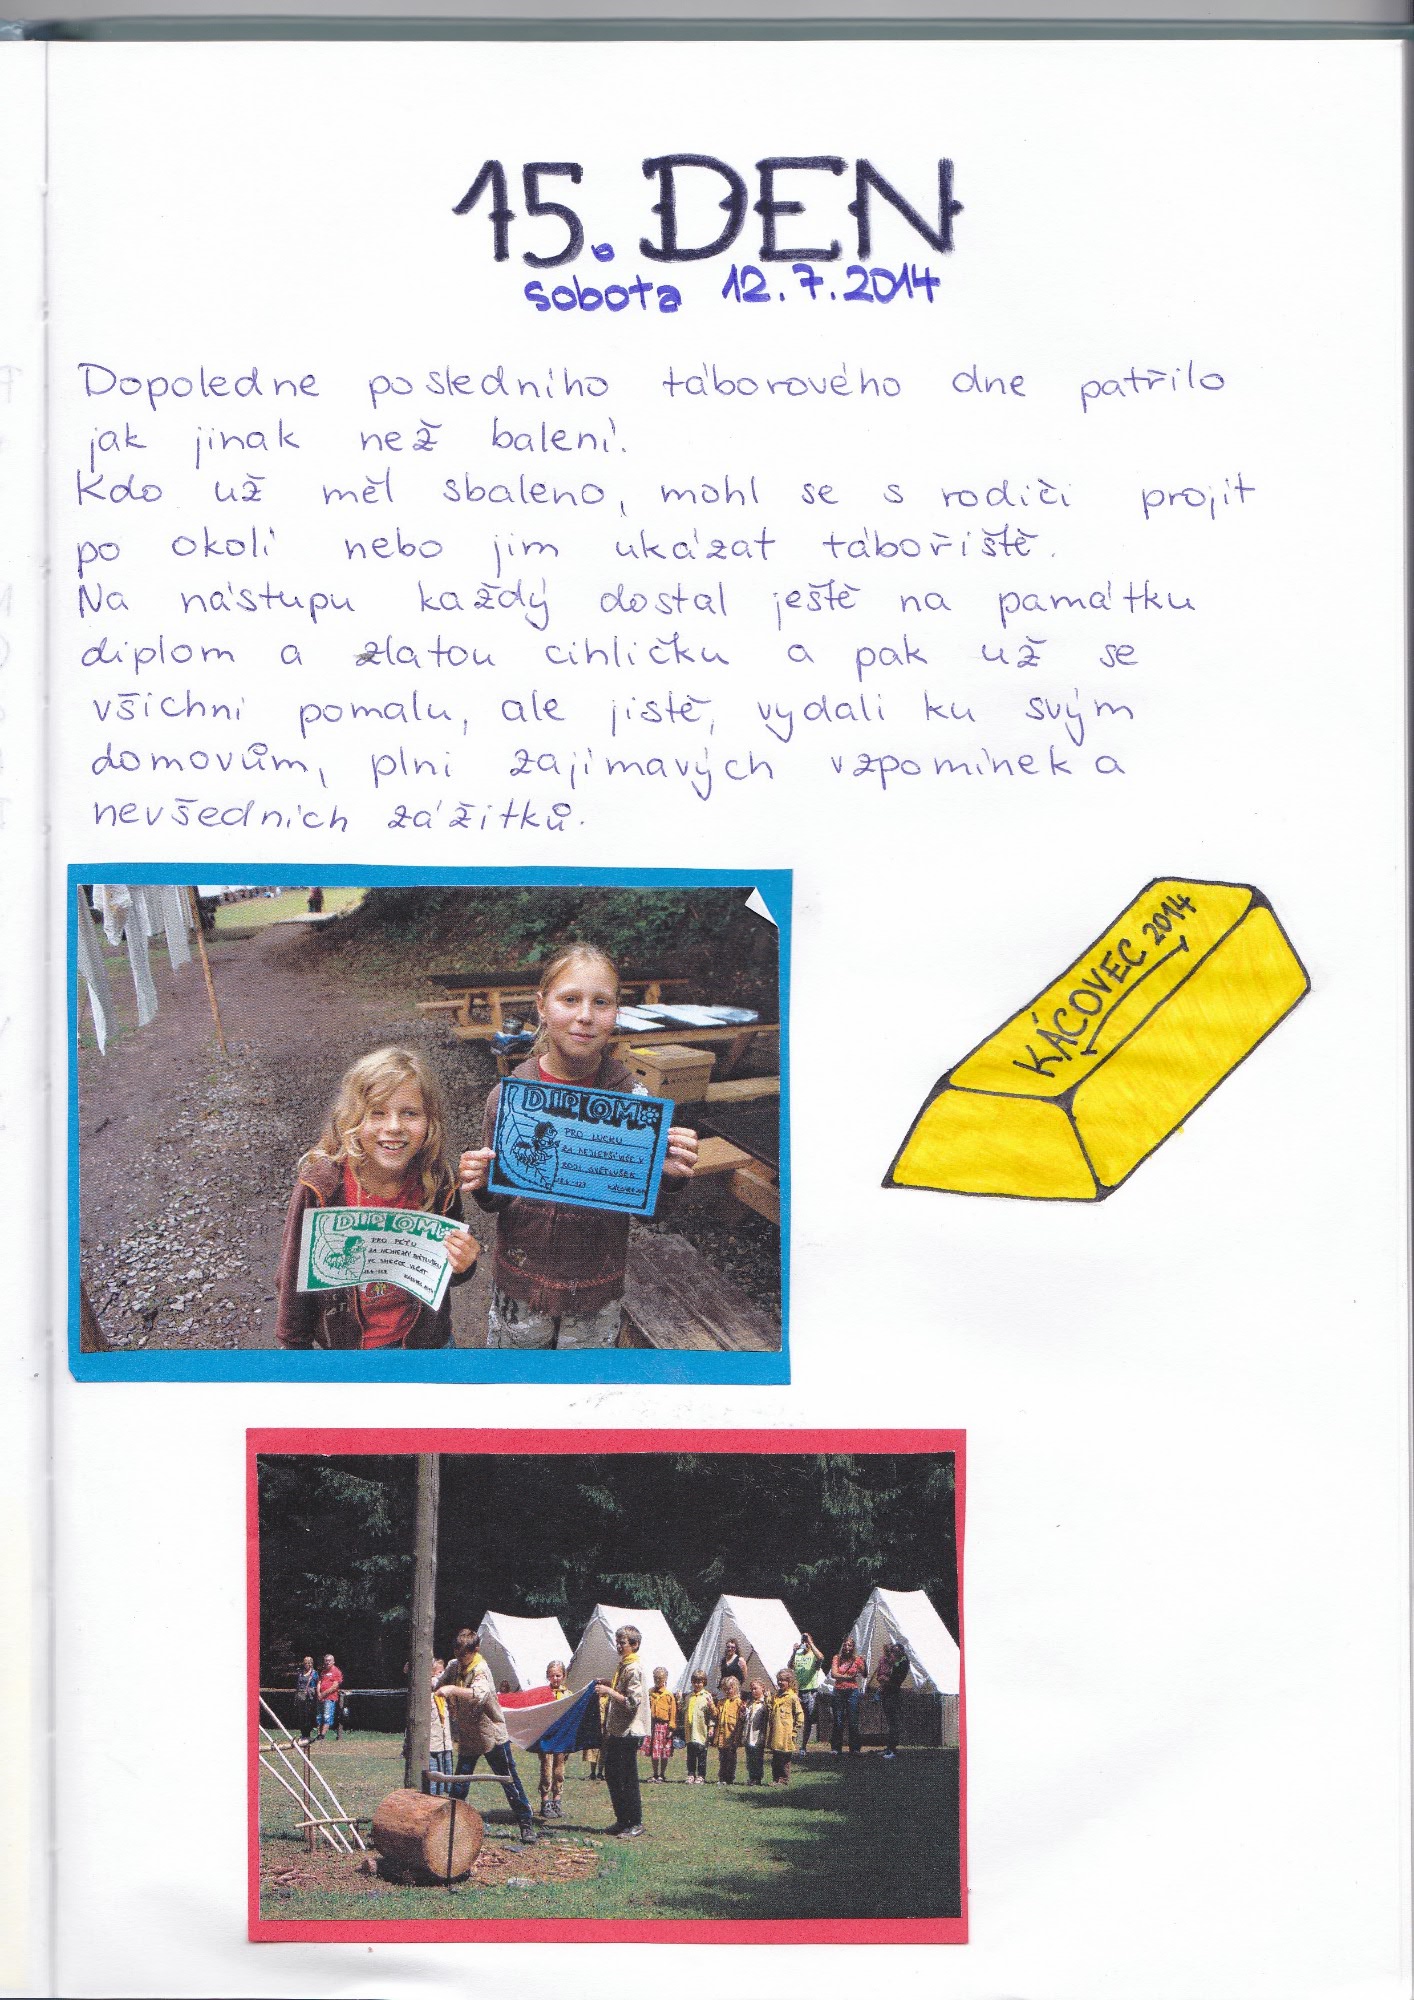 15. DEN
sobota 12.7.2014
Dopoledne posledního táborového dne patřilo
jak jinak než balení.
Kdo už měl sbaleno, mohl se s rodiči projít
po okolí nebo jim ukázat tábořiště.
Na nástupu každý dostal ještě na památku
diplom a zlatou cihličku a pak už se
všichni pomalu, ale jistě, vydali ku svým
domovům, plni zajímavých vzpomínek a
nevšedních zážitků.
KÁCOVEC 2014
DIPLOM
PRO LUCKU
ZA NEJLEPŠÍ
V
RODI SVĚTLUŠEK
DIPLOM
PRO PÉŤU
ZA